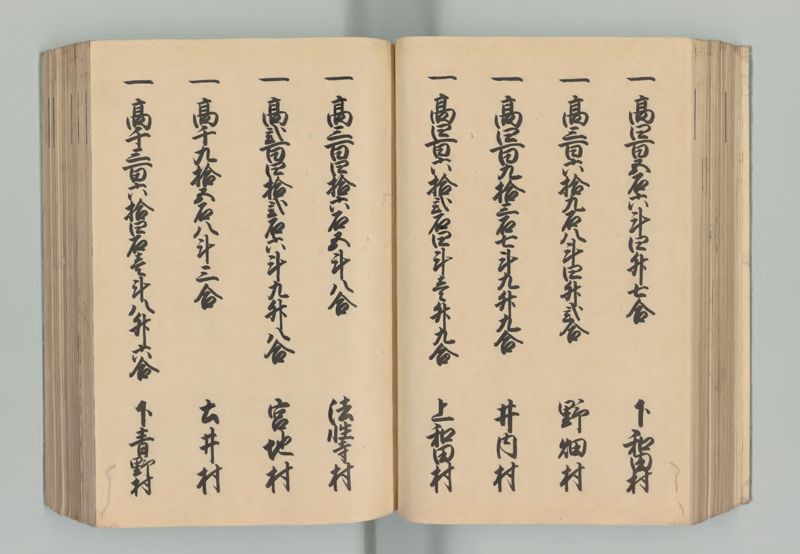 一 高四百五石六斗四升七合 下和田村
一 高三百六拾九石八斗四升弐合 野畑村
一 高四百九拾三石七斗九升九合 井内村
一 高四百六拾弐石四斗壱升九合 上和田村
一 高三百四拾六石五斗八合 法性寺村
一 高弐百四拾弐石六斗九升八合 宮地村
一 高千九拾五石八斗三合 土井村
一 高千三百六拾四石壱斗八升六合 下青野村